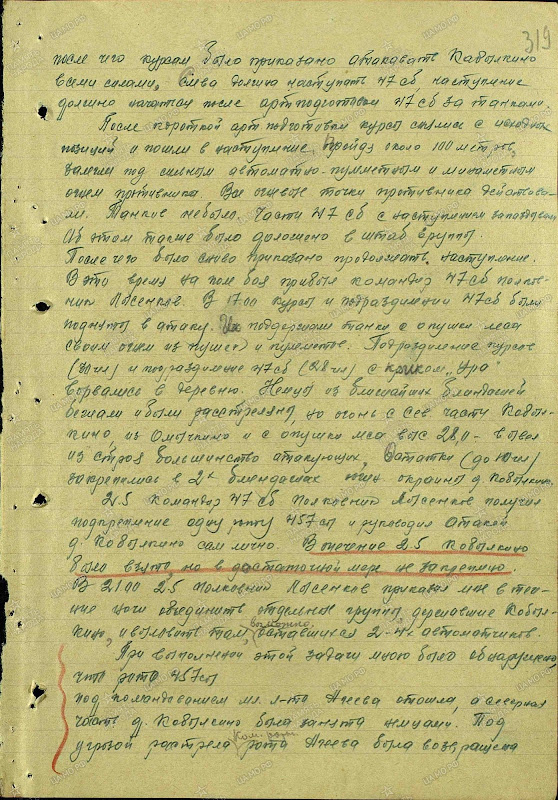 319
после чего курсам было приказано атаковать Кобылкино
всеми силами, слева должно наступать 47 сб наступление
должно начаться после артподготовки 47 сб за танками.
После короткой артподготовки курсы снялись с исходных
позиций и пошли в наступление, пройдя около 100 метров,
залегли под сильным автоматно-пулеметным и минометным
огнем противника. Все огневые точки противника действова-
ли. Танков небыло. Части 47 сб с наступлением запоздали
Об этом также было доложено в штаб группы.
После чего было снова приказано продолжать наступление.
В это время на поле боя прибыл командир 47 сб полков-
ник Лысенков. В 17.00 курсы и подразделения 47 сб были
подняты в атаку. Их поддержали танки с опушки леса
своим огнем из пушек и пулеметов. Подразделение курсов
(30 чел) и подразделение 47 сб (28 чел) с криком "Ура"
ворвались в деревню. Немцы из ближайших блиндажей
бежали и были расстреляны, но огонь с сев. части Кобыл-
кино, из Олычкино и с опушки леса выс 28,0 - вывел
из строя большинство атакующих. Остатки (до 10 чел)
закрепились в 2х блиндажах южн. окраины д. Кобылкино.
2.5 командир 47 сб полковник Лысенков получил
подкрепление одну роту 457 сп и руководил атакой
д. Кобылкино сам лично. В течение 2.5 Кобылкино
было взято но в достаточной мере не закреплено.
В 21.00 2.5 полковник Лысенков приказал мне в тече-
ние ночи объединить отдельные группы, державшие Кобыл-
кино, и выловить там, возможно, оставшихся 2-4х автоматчиков.
При выполнении этой задачи мною было обнаружено,
что рота 457 сп
под командованием мл. л-та Агеева отошла, а северная
часть д. Кобылкино была занята немцами. Под
угрозой расстрела ком. роты рота Агеева была возвращена